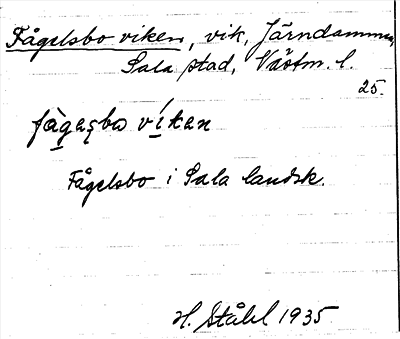 Fågelsbo viken, vik, Järndammen,
Sala stad, Västm. l.
25.
fågeṣbo víken
Fågelsbo i Sala landsk.
H. Ståhl 1935